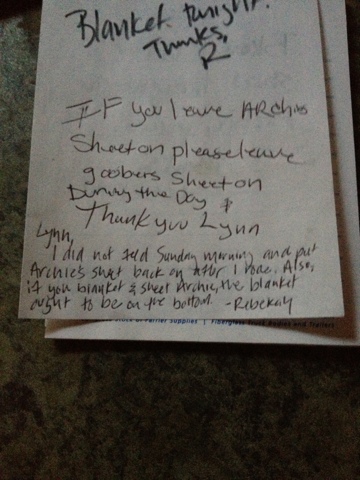 Blanket tonight.
Thanks,
R
IF you leave Archies
Sheet on please leave
goobers Sheet on
During the Day &
Thank you Lynn
Lynn,
I did not feed Sunday morning and put
Archie's sheet back on after I rode. Also,
if you blanket & sheet Archie, the blanket
ought to be on the bottom. -Rebekah
Farrier Supplies | Fiberglass Truck Bodies and Trailers